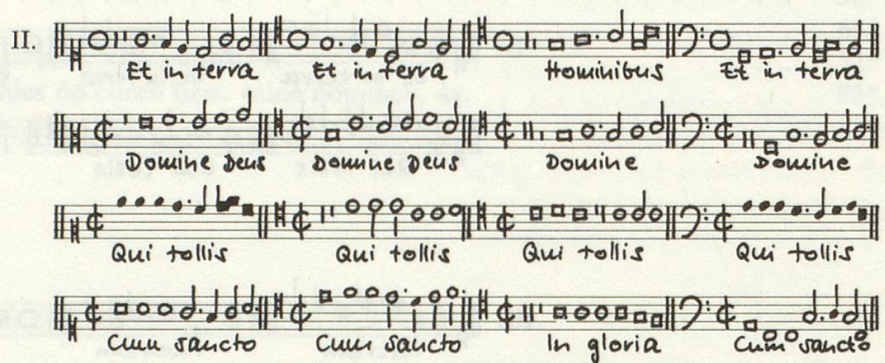 II.
Et in terra Et in terra Hominibus Et in terra
Domine Deus Domine Deus Domine Domine
Qui tollis Qui tollis Qui tollis Qui tollis
Cum sancto Cum sancto In gloria Cum sancto